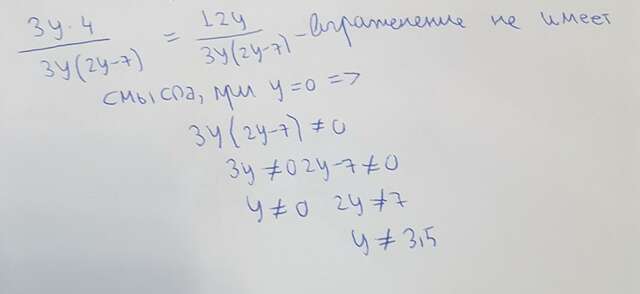 3y·4 / 3y(2y-7) = 12y / 3y(2y-7) - выражение не имеет
смысла, при y=0 =>
3y(2y-7)≠0
3y≠0 2y-7≠0
y≠0 2y≠7
y≠3,5